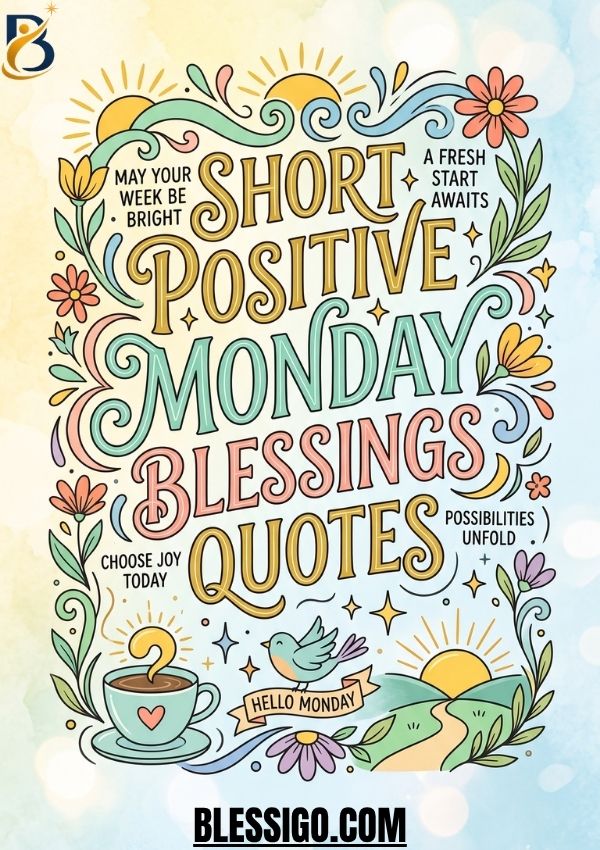 B
MAY YOUR
WEEK BE
BRIGHT
SHORT
A FRESH
START
AWAITS
POSITIVE
MONDAY
BLESSINGS
QUOTES
POSSIBILITIES
UNFOLD
CHOOSE JOY
TODAY
HELLO MONDAY
BLESSIGO.COM